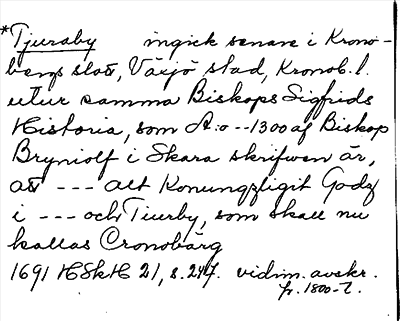 *Tjuraby ingick senare i Krono-
bergs slott, Växjö stad, Kronob. l.
utur samma Biskops Sigfrids
Historia, som A:o -- 1300 af Biskop
Bryniolf i Skara skrifwen är,
att --- alt Konungzligit Godz
i --- och Tiurby, som skall nu
kallas Cronobärg
1691 HSkH 21, s. 247. vidim. avskr.
fr. 1800-t.